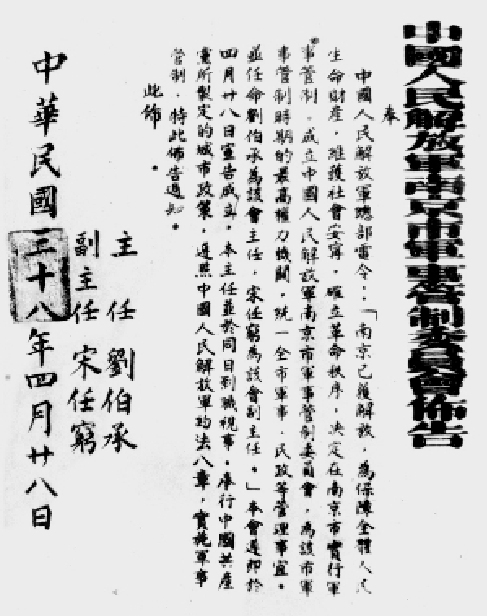 中國人民解放軍南京市軍事管制委員會佈告
奉
中國人民解放軍總部電令：「南京已獲解放，為保障全體人民
生命財產，維護社會安寧，確立革命秩序，決定在南京市實行軍
事管制，成立中國人民解放軍南京市軍事管制委員會，為該市軍
事管制時期的最高權力機關，統一全市軍事、民政等管理事宜。
並任命劉伯承為該會主任，宋任窮為該會副主任。」本會遵即於
四月廿八日宣告成立，本主任並於同日到職視事，奉行中國共產
黨所製定的城市政策，遵照中國人民解放軍約法八章，實施軍事
管制，特此佈告週知。
此佈。
主任 劉伯承
副主任 宋任窮
中華民國三十八年四月廿八日